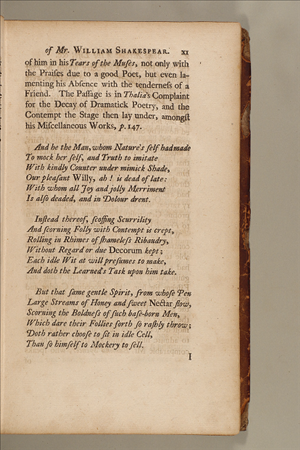 of Mr. WILLIAM SHAKESPEAR. xi
of him in his Tears of the Muſes, not only with
the Praiſes due to a good Poet, but even la-
menting his Abſence with the tenderneſs of a
Friend. The Paſſage is in Thalia's Complaint
for the Decay of Dramatick Poetry, and the
Contempt the Stage then lay under, amongſt
his Miſcellaneous Works, p. 147.
And he the Man, whom Nature's ſelf had made
To mock her ſelf, and Truth to imitate
With kindly Counter under mimick Shade,
Our pleaſant Willy, ah! is dead of late:
With whom all Joy and jolly Merriment
Is alſo deaded, and in Dolour drent.
Inſtead thereof, ſcoffing Scurrility
And ſcorning Folly with Contempt is crept,
Rolling in Rhimes of ſhameleſs Ribaudry,
Without Regard or due Decorum kept;
Each idle Wit at will preſumes to make,
And doth the Learned's Task upon him take.
But that ſame gentle Spirit, from whoſe Pen
Large Streams of Honey and ſweet Nectar flow,
Scorning the Boldneſs of ſuch baſe-born Men,
Which dare their Follies forth ſo raſhly throw;
Doth rather chooſe to ſit in idle Cell,
Than ſo himſelf to Mockery to ſell.
I